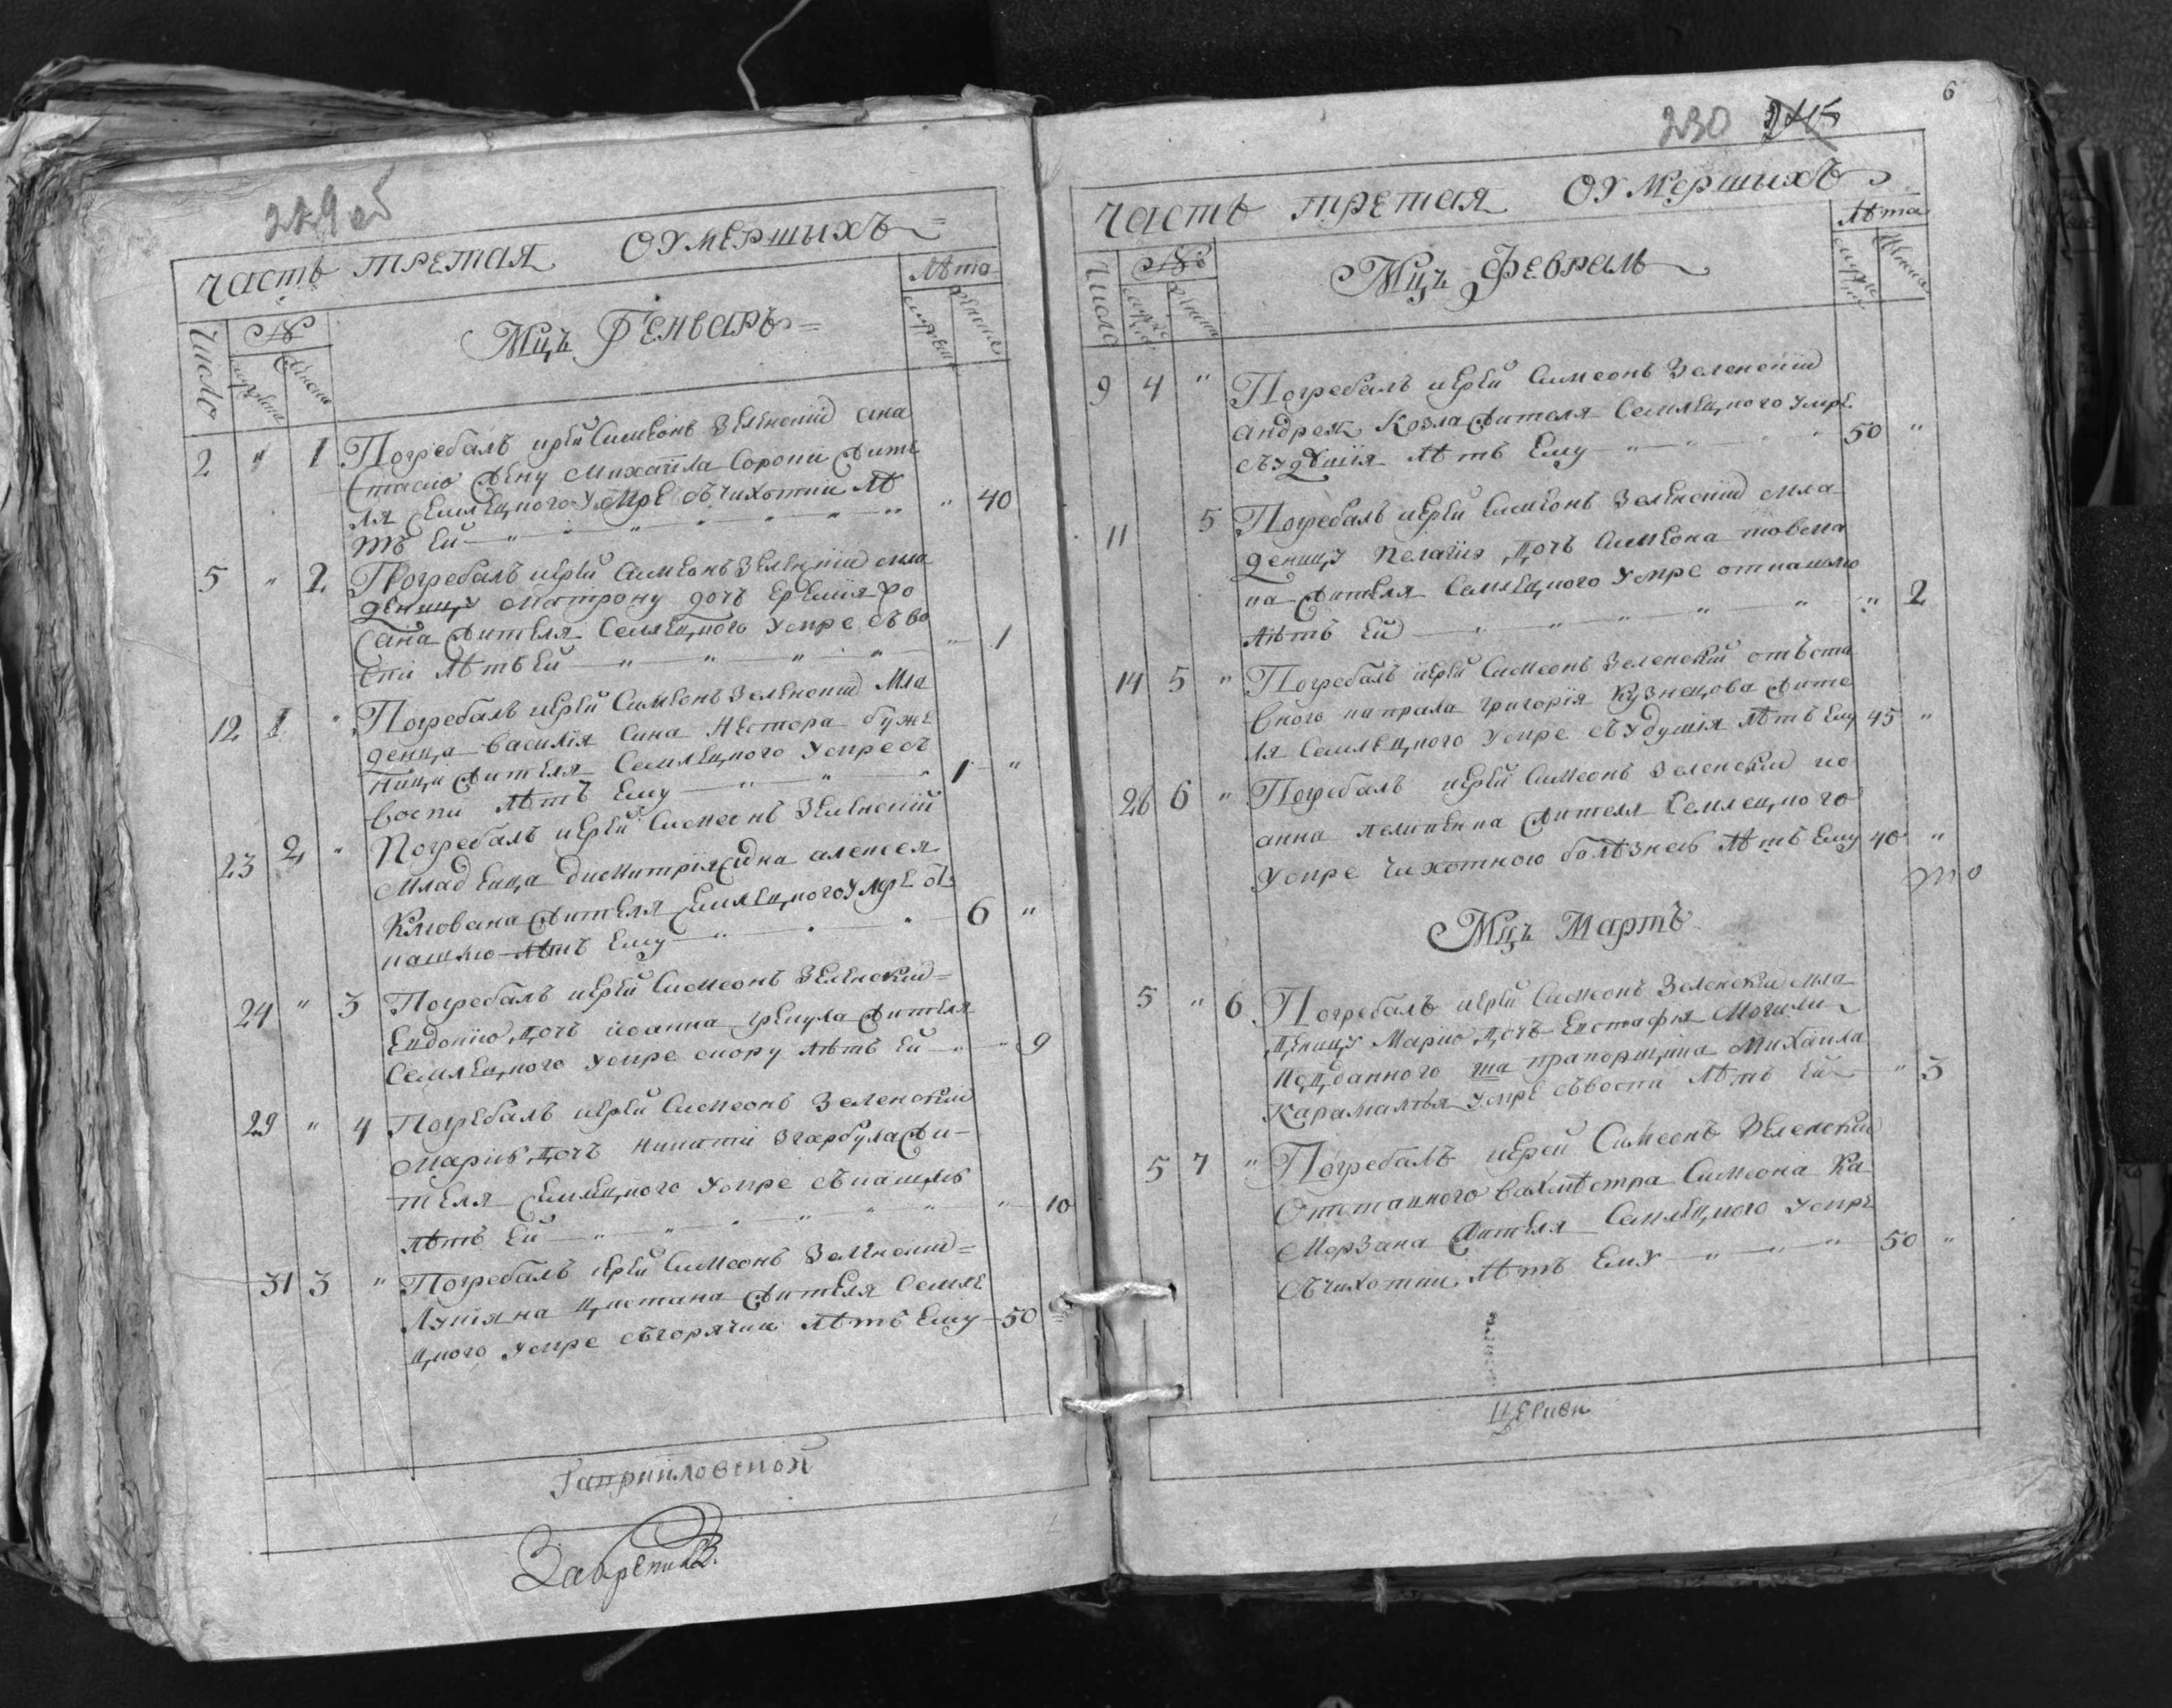 229об
Часть третая оумершыхъ
Число № Лѣта
мужска женска Мцъ Генваръ мужеска женска
2 " 1 Погребалъ иерей Симеонъ Зеленский Ана
стасию жену Михаила Сороки жите
ля Семлецкого умре съ чихотки лѣ
тъ ей " 40
5 " 2 Погребалъ иерей Симеонъ Зеленский мла
деницу Матрону дочъ Еремия Фо
жителя Семлецкого умре съ во
спи лѣтъ ей " 1
12 1 " Погребалъ иерей Симеонъ Зеленский мла
денца Василия сина Нестора Буже
ници жителя Семлецкого умре съ
воспи лѣтъ ему 1 "
23 2 " Погребалъ иерей Симеонъ Зеленский
младенца Димитрия сина Алексея
жителя Семлецкого умре съ
кашлю лѣтъ ему 6 "
24 " 3 Погребалъ иерей Симеонъ Зеленский
Евдокию дочъ Иоанна жителя
Семлецкого умре скору лѣтъ ей " 9
29 " 4 Погребалъ иерей Симеонъ Зеленский
Марию дочъ Никити Згарбула жи
теля Семлецкого умре съ кашлю
лѣтъ ей " 10
31 3 " Погребалъ иерей Симеонъ Зеленский
Лукияна жителя Семле
цкого умре съ горячки лѣтъ ему 50 "
Гаврииловской
Закрепилъ
6
230 245
Часть третая оумершыхъ
Число № Лѣта
Мцъ Февраль
9 4 " Погребалъ иерей Симеонъ Зеленский
Андрея Козла жителя Семлецкого умре
съ удушия лѣтъ ему 50 "
11 5 Погребалъ иерей Симеонъ Зеленский мла
деницу Пелагию дочъ Симеона
жителя Семлецкого умре от кашлю
лѣтъ ей " 2
14 5 " Погребалъ иерей Симеонъ Зеленский отъста
вного капрала Григория Кузнецова жите
ля Семлецкого умре съ удушия лѣтъ ему 45 "
26 6 " Погребалъ иерей Симеонъ Зеленский ио
анна жителя Семлецкого
умре чихотною болѣзнею лѣтъ ему 40 "
Мцъ Мартъ
5 " 6 Погребалъ иерей Симеонъ Зеленский мла
деницу Марию дочъ Евстафия
подданного прапорщика Михаила
Карамалѣя умре съ воспи лѣтъ ей " 3
5 7 " Погребалъ иерей Симеонъ Зеленский
Отставного вахмѣстра Симеона Ка
Морзана жителя Семлецкого умре
съ чихотки лѣтъ ему 50 "
Церкви